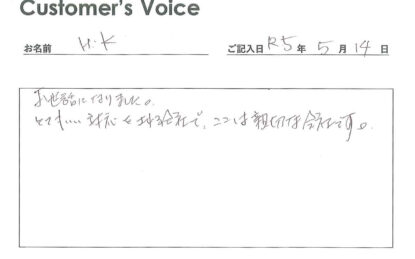 Customer's Voice
お名前 H.K ご記入日 R5 年 5 月 14 日
お世話になりました。
とてもいい対応をする会社で、ここは親切な会社です。